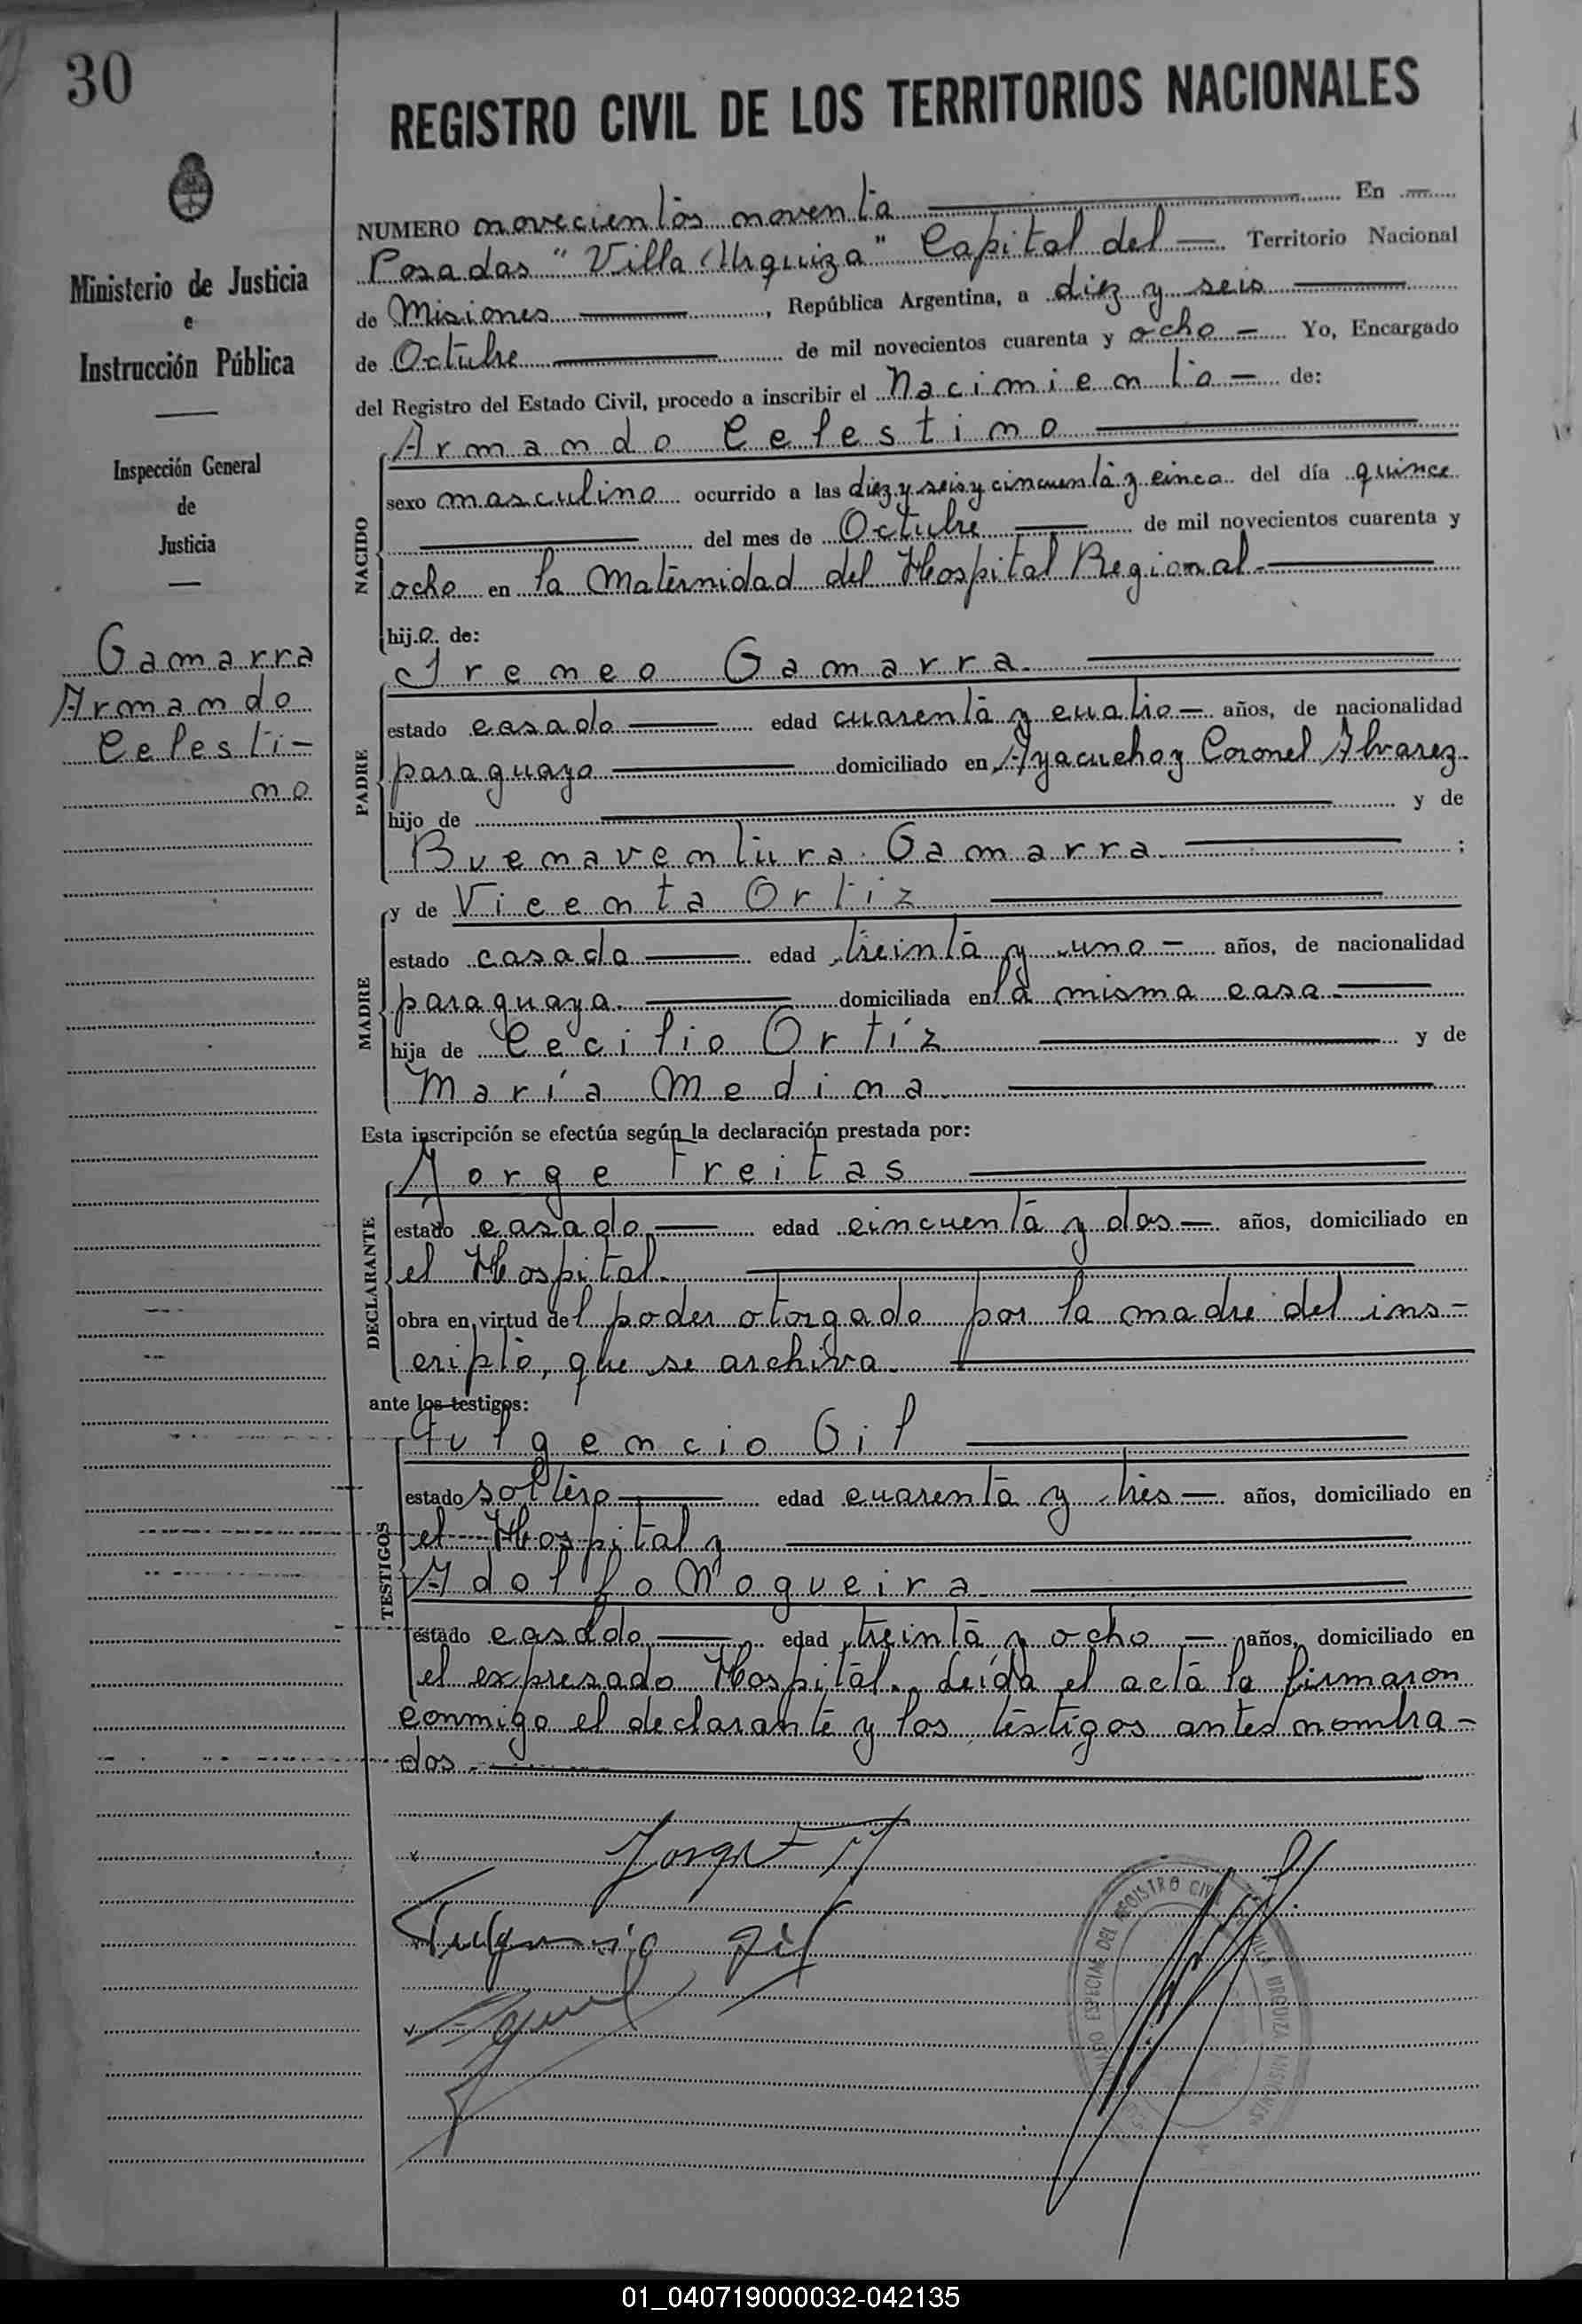 30
REGISTRO CIVIL DE LOS TERRITORIOS NACIONALES
Ministerio de Justicia
e
Instrucción Pública
Inspección General
de
Justicia
Gamarra
Armando
Celesti-
no
NUMERO novecientos noventa En
Posadas "Villa Urquiza" Capital del Territorio Nacional
de Misiones, República Argentina, a diez y seis
de Octubre de mil novecientos cuarenta y ocho Yo, Encargado
del Registro del Estado Civil, procedo a inscribir el Nacimiento de:
Armando Celestino
NACIDO
sexo masculino ocurrido a las diez y seis y cincuenta y cinco del día quince
del mes de Octubre de mil novecientos cuarenta y
ocho en la Maternidad del Hospital Regional.
hijo de:
Ireneo Gamarra.
PADRE
estado casado edad cuarenta y cuatro años, de nacionalidad
paraguayo domiciliado en Ayacucho y Coronel Alvarez.
hijo de y de
Buenaventura Gamarra. ;
y de Vicenta Ortiz
MADRE
estado casada edad treinta y uno años, de nacionalidad
paraguaya. domiciliada en la misma casa.
hija de Cecilio Ortíz y de
María Medina.
Esta inscripción se efectúa según la declaración prestada por:
Jorge Freitas
DECLARANTE
estado casado edad cincuenta y dos años, domiciliado en
el Hospital.
obra en virtud del poder otorgado por la madre del ins-
cripto, que se archiva.
ante los testigos:
Fulgencio Gil
TESTIGOS
estado soltero edad cuarenta y tres años, domiciliado en
el Hospital y
Adolfo Nogueira
estado casado edad treinta y ocho años, domiciliado en
el expresado Hospital. Leída el acta la firmaron
conmigo el declarante y los testigos antes nombra-
dos.
Jorge
Fulgencio Gil
REGISTRO CIVIL VILLA URQUIZA MISIONES
01_040719000032-042135